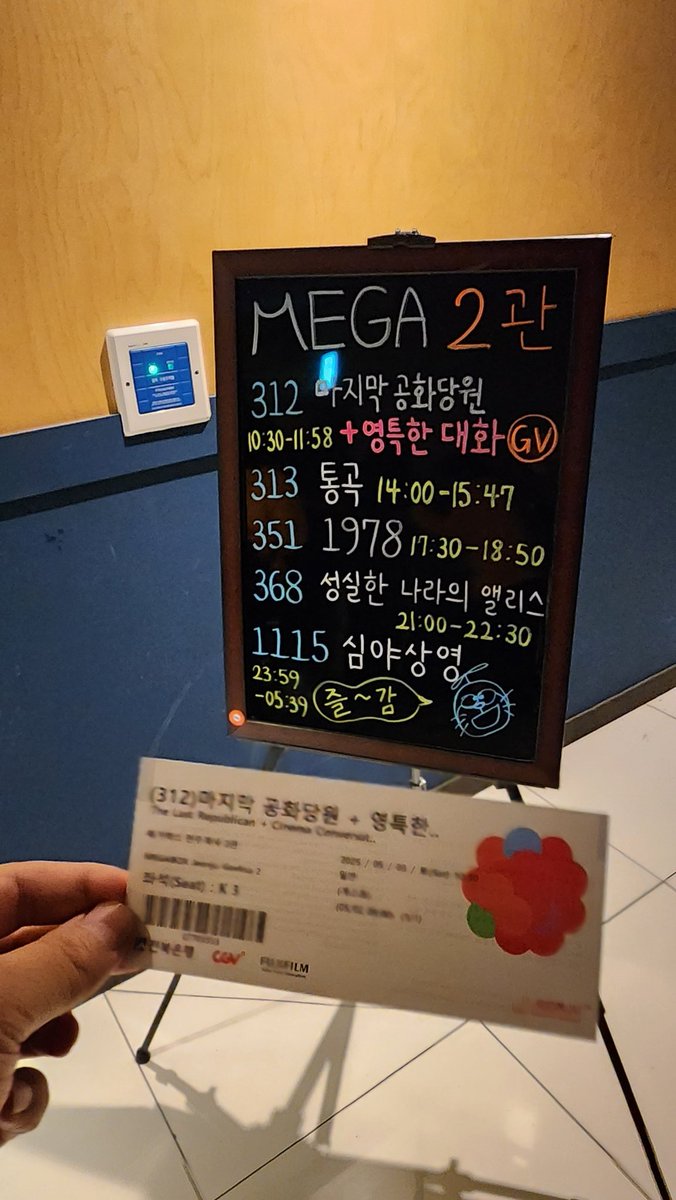 MEGA 2관
312 마지막 공화당원
10:30-11:58 +영특한 대화 GV
313 통곡 14:00-15:47
351 1978 17:30-18:50
368 성실한 나라의 앨리스
21:00-22:30
1115 심야상영
23:59
-05:39 즐~감
(312)마지막 공화당원 + 영특한..
The Last Republican + Cinema Conversat..
좌석(Seat) : K 3
전북은행 CGV FUJIFILM